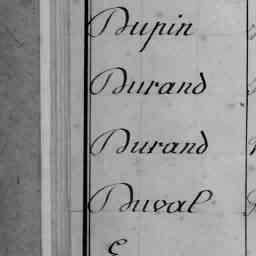 Dupin
Durand
Durand
Duval